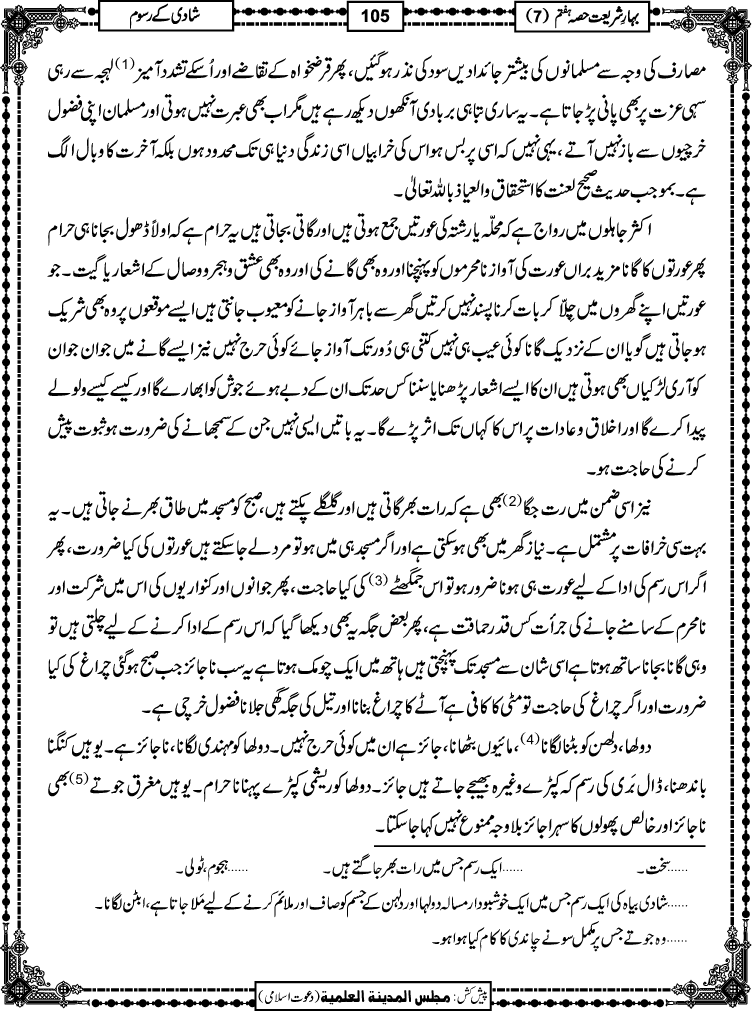 بہارِ شریعت حصہ ہفتم (7)
105
شادی کے رسوم
مصارف کی وجہ سے مسلمانوں کی بیشتر جائدادیں سود کی نذر ہوگئیں، پھر قرضخواہ کے تقاضے اور اُسکے تشدد آمیز (1) لہجہ سے رہی
سہی عزت پر بھی پانی پڑ جاتا ہے۔ یہ ساری تباہی بربادی آنکھوں دیکھ رہے ہیں مگر اب بھی عبرت نہیں ہوتی اور مسلمان اپنی فضول
خرچیوں سے باز نہیں آتے، یہی نہیں کہ اسی پر بس ہو اس کی خرابیاں اسی زندگی دنیا ہی تک محدود ہوں بلکہ آخرت کا وبال الگ
ہے۔ بموجب حدیث صحیح لعنت کا استحقاق والعیاذ باللہ تعالیٰ۔
اکثر جاہلوں میں رواج ہے کہ محلّہ یا رشتہ کی عورتیں جمع ہوتی ہیں اور گاتی بجاتی ہیں یہ حرام ہے کہ اولاً ڈھول بجانا ہی حرام
پھر عورتوں کا گانا مزید براں عورت کی آواز نامحرموں کو پہنچنا اور وہ بھی گانے کی اور وہ بھی عشق و ہجر و وصال کے اشعار یا گیت۔ جو
عورتیں اپنے گھروں میں چِلّا کر بات کرنا پسند نہیں کرتیں گھر سے باہر آواز جانے کو معیوب جانتی ہیں ایسے موقعوں پر وہ بھی شریک
ہو جاتی ہیں گویا ان کے نزدیک گانا کوئی عیب ہی نہیں کتنی ہی دُور تک آواز جائے کوئی حرج نہیں نیز ایسے گانے میں جوان جوان
کوآری لڑکیاں بھی ہوتی ہیں ان کا ایسے اشعار پڑھنا یا سننا کس حد تک ان کے دبے ہوئے جوش کو ابھارے گا اور کیسے کیسے ولولے
پیدا کرے گا اور اخلاق و عادات پر اس کا کہاں تک اثر پڑے گا۔ یہ باتیں ایسی نہیں جن کے سمجھانے کی ضرورت ہو ثبوت پیش
کرنے کی حاجت ہو۔
نیز اسی ضمن میں رت جگا (2) بھی ہے کہ رات بھر گاتی ہیں اور گلگلے پکتے ہیں، صبح کو مسجد میں طاق بھرنے جاتی ہیں۔ یہ
بہت سی خرافات پر مشتمل ہے۔ نیاز گھر میں بھی ہوسکتی ہے اور اگر مسجد ہی میں ہو تو مرد لے جا سکتے ہیں عورتوں کی کیا ضرورت، پھر
اگر اس رسم کی ادا کے لیے عورت ہی ہونا ضرور ہو تو اس جمگھٹے (3) کی کیا حاجت، پھر جوانوں اور کنواریوں کی اس میں شرکت اور
نامحرم کے سامنے جانے کی جرأت کس قدر حماقت ہے، پھر بعض جگہ یہ بھی دیکھا گیا کہ اس رسم کے ادا کرنے کے لیے چلتی ہیں تو
وہی گانا بجانا ساتھ ہوتا ہے اسی شان سے مسجد تک پہنچتی ہیں ہاتھ میں ایک چومک ہوتا ہے یہ سب ناجائز جب صبح ہوگئی چراغ کی کیا
ضرورت اور اگر چراغ کی حاجت تو مٹی کا کافی ہے آٹے کا چراغ بنانا اور تیل کی جگہ گھی جلانا فضول خرچی ہے۔
دولھا، دلھن کو بٹنا لگانا (4)، مائیوں بٹھانا، جائز ہے ان میں کوئی حرج نہیں۔ دولھا کو مہندی لگانا، ناجائز ہے۔ یوہیں کنگنا
باندھنا، ڈال بَری کی رسم کہ کپڑے وغیرہ بھیجے جاتے ہیں جائز۔ دولھا کو ریشمی کپڑے پہنانا حرام۔ یوہیں مغرق جوتے (5) بھی
ناجائز اور خالص پھولوں کا سہرا جائز بلا وجہ ممنوع نہیں کہا جا سکتا۔
......سخت۔ ......ایک رسم جس میں رات بھر جاگتے ہیں۔ ......ہجوم، ٹولی۔
......شادی بیاہ کی ایک رسم جس میں ایک خوشبودار مسالہ دولہا اور دلہن کے جسم کو صاف اور ملائم کرنے کے لیے مَلا جاتا ہے، ابٹن لگانا۔
......وہ جوتے جس پر مکمل سونے چاندی کا کام کیا ہوا ہو۔
پیش کش: مجلس المدینۃ العلمیۃ (دعوت اسلامی)